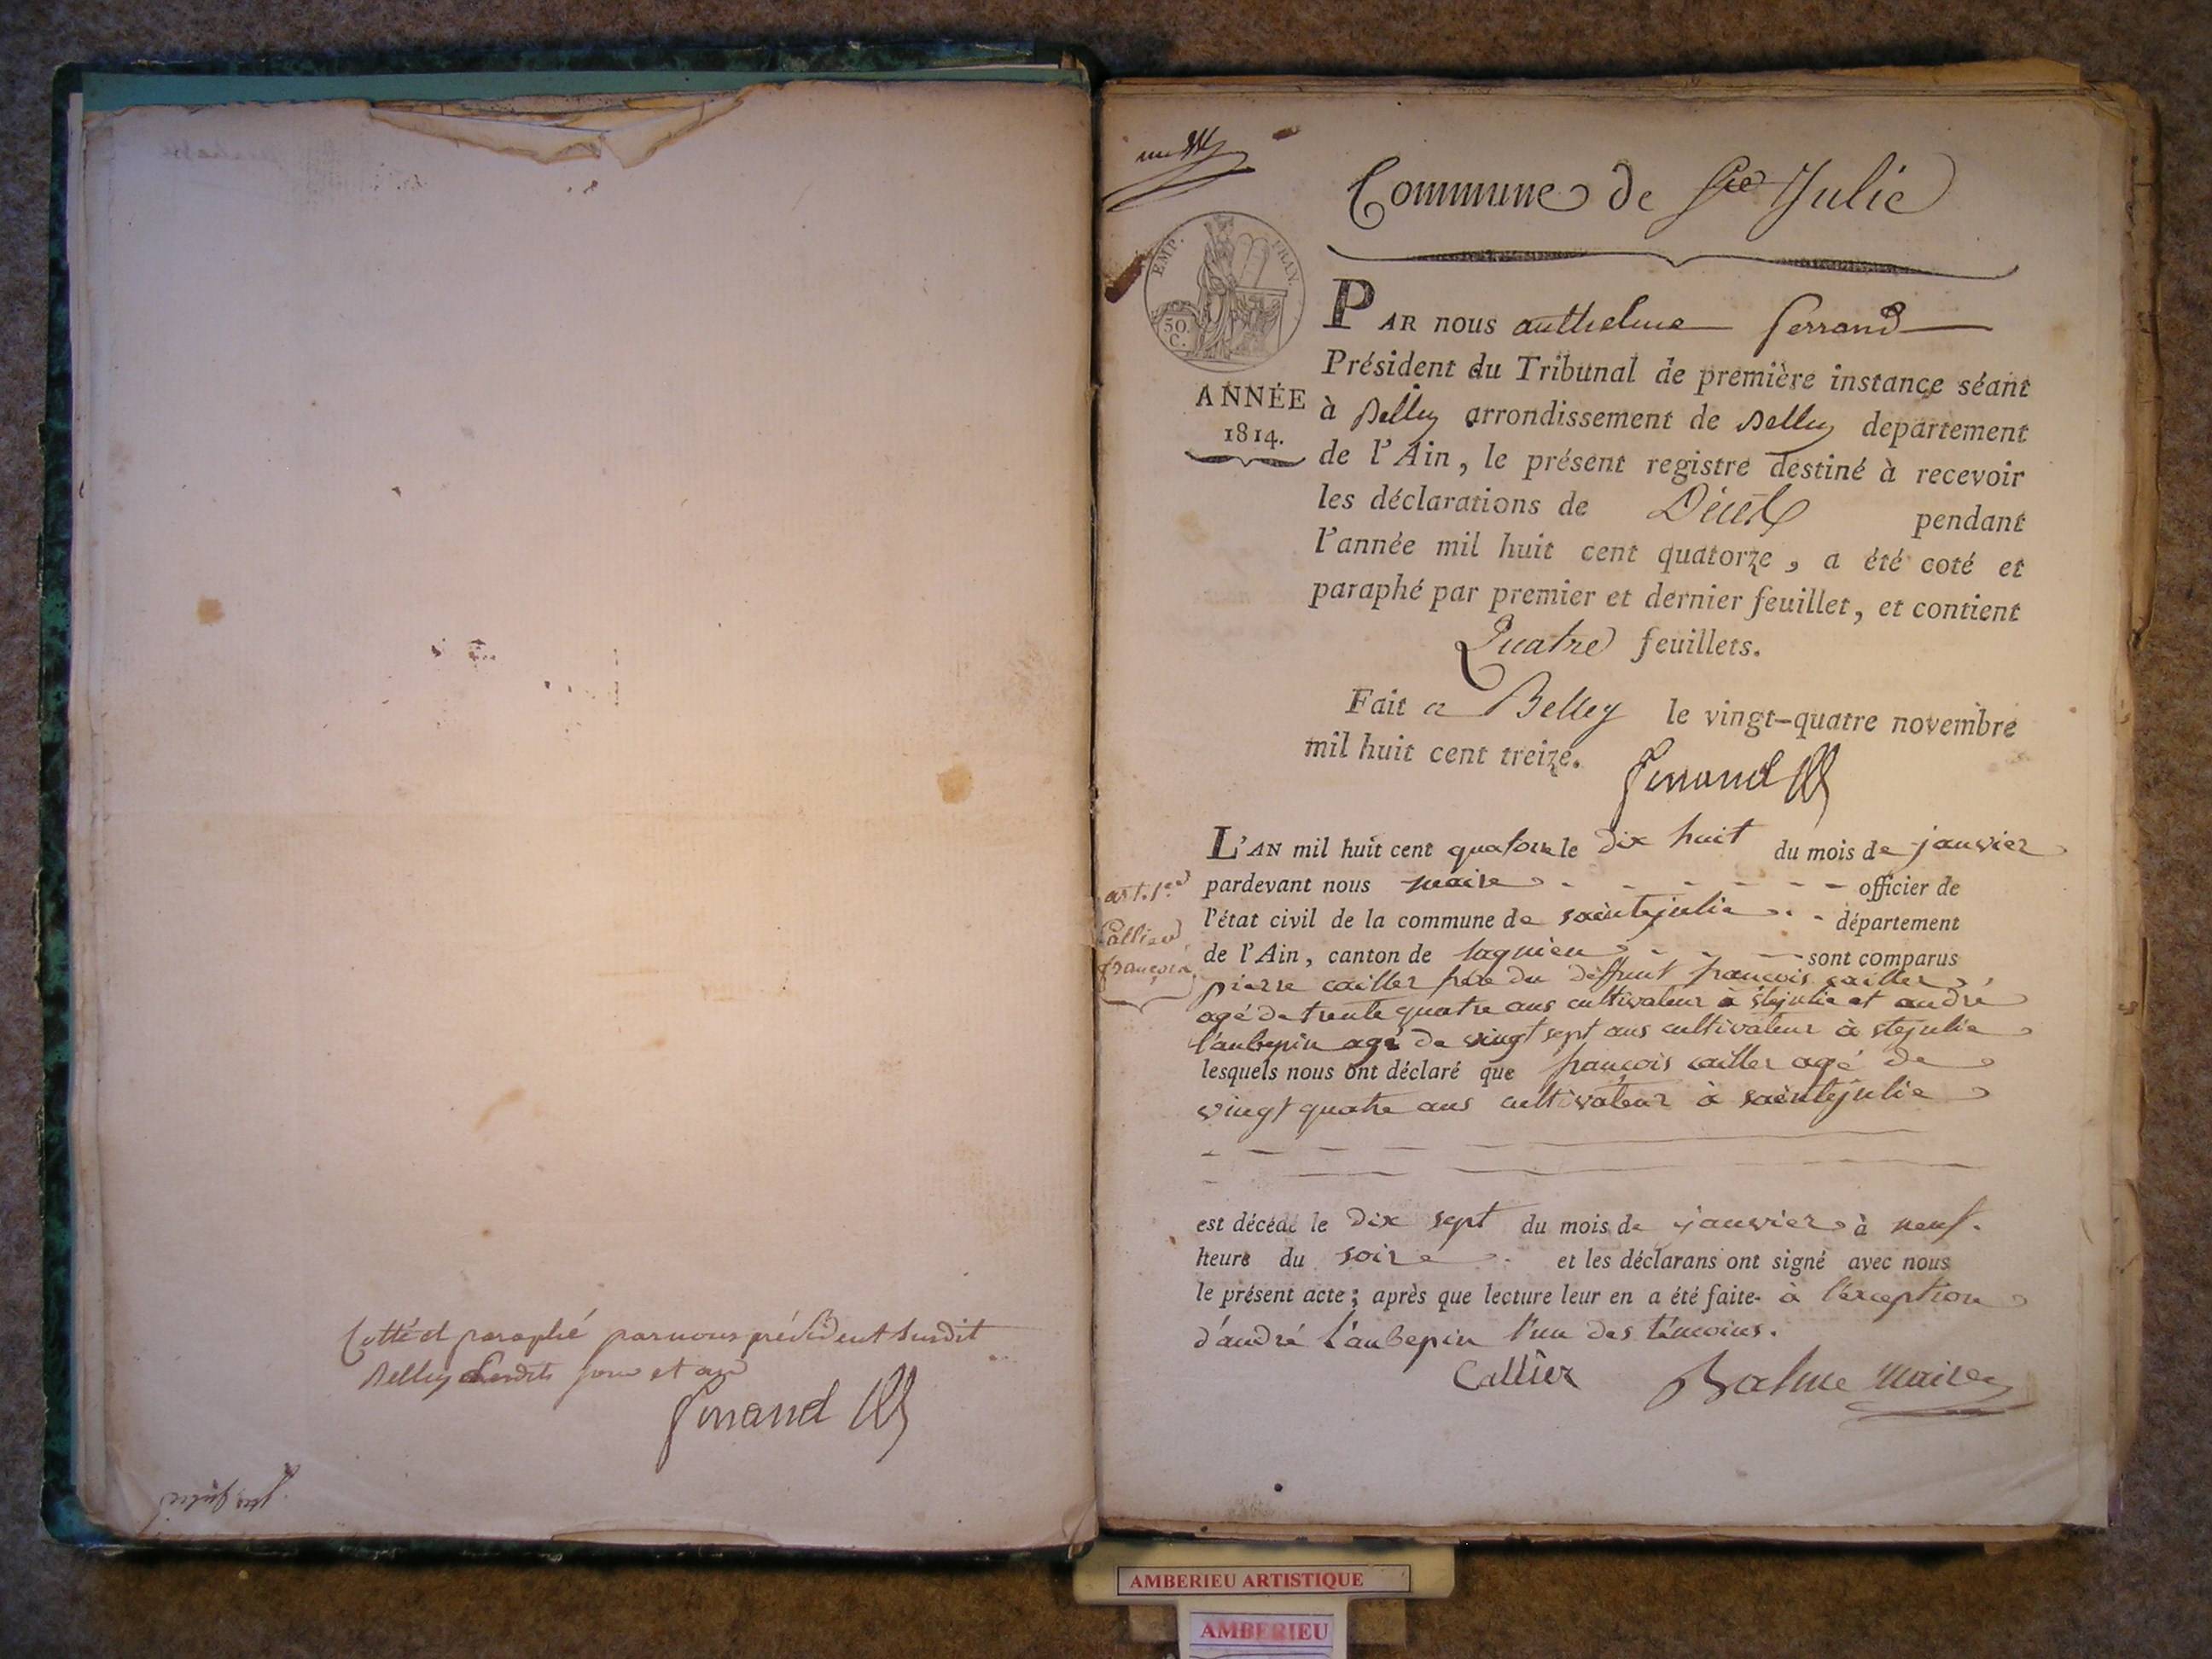 Cotté et paraphé par nous président susdit
Belley lesdits jour et an
Ferrand
Commune de Ste Julie
EMP. FRAN.
50.
C.
ANNÉE
1814.
PAR nous anthelme Ferrand
Président du Tribunal de première instance séant
à Belley arrondissement de Belley département
de l'Ain, le présent registre destiné à recevoir
les déclarations de Décès pendant
l'année mil huit cent quatorze, a été coté et
paraphé par premier et dernier feuillet, et contient
Quatre feuillets.
Fait a Belley le vingt-quatre novembre
mil huit cent treize.
Ferrand
art. 1er
Callier
françois
L'AN mil huit cent quatorze le dix huit du mois de janvier
pardevant nous maire officier de
l'état civil de la commune de saintejulie département
de l'Ain, canton de lagnieu sont comparus
pierre cailler frère du deffunt françois cailler
agé de trente quatre ans cultivateur à stejulie et andré
l'aubepin agé de vingt sept ans cultivateur à stejulie
lesquels nous ont déclaré que françois cailler agé de
vingt quatre ans cultivateur à saintejulie
est décédé le dix sept du mois de janvier à neuf
heure du soire et les déclarans ont signé avec nous
le présent acte; après que lecture leur en a été faite à l'exception
d'andré l'aubepin l'un des témoins.
Callier Balme maire
AMBERIEU ARTISTIQUE
AMBERIEU